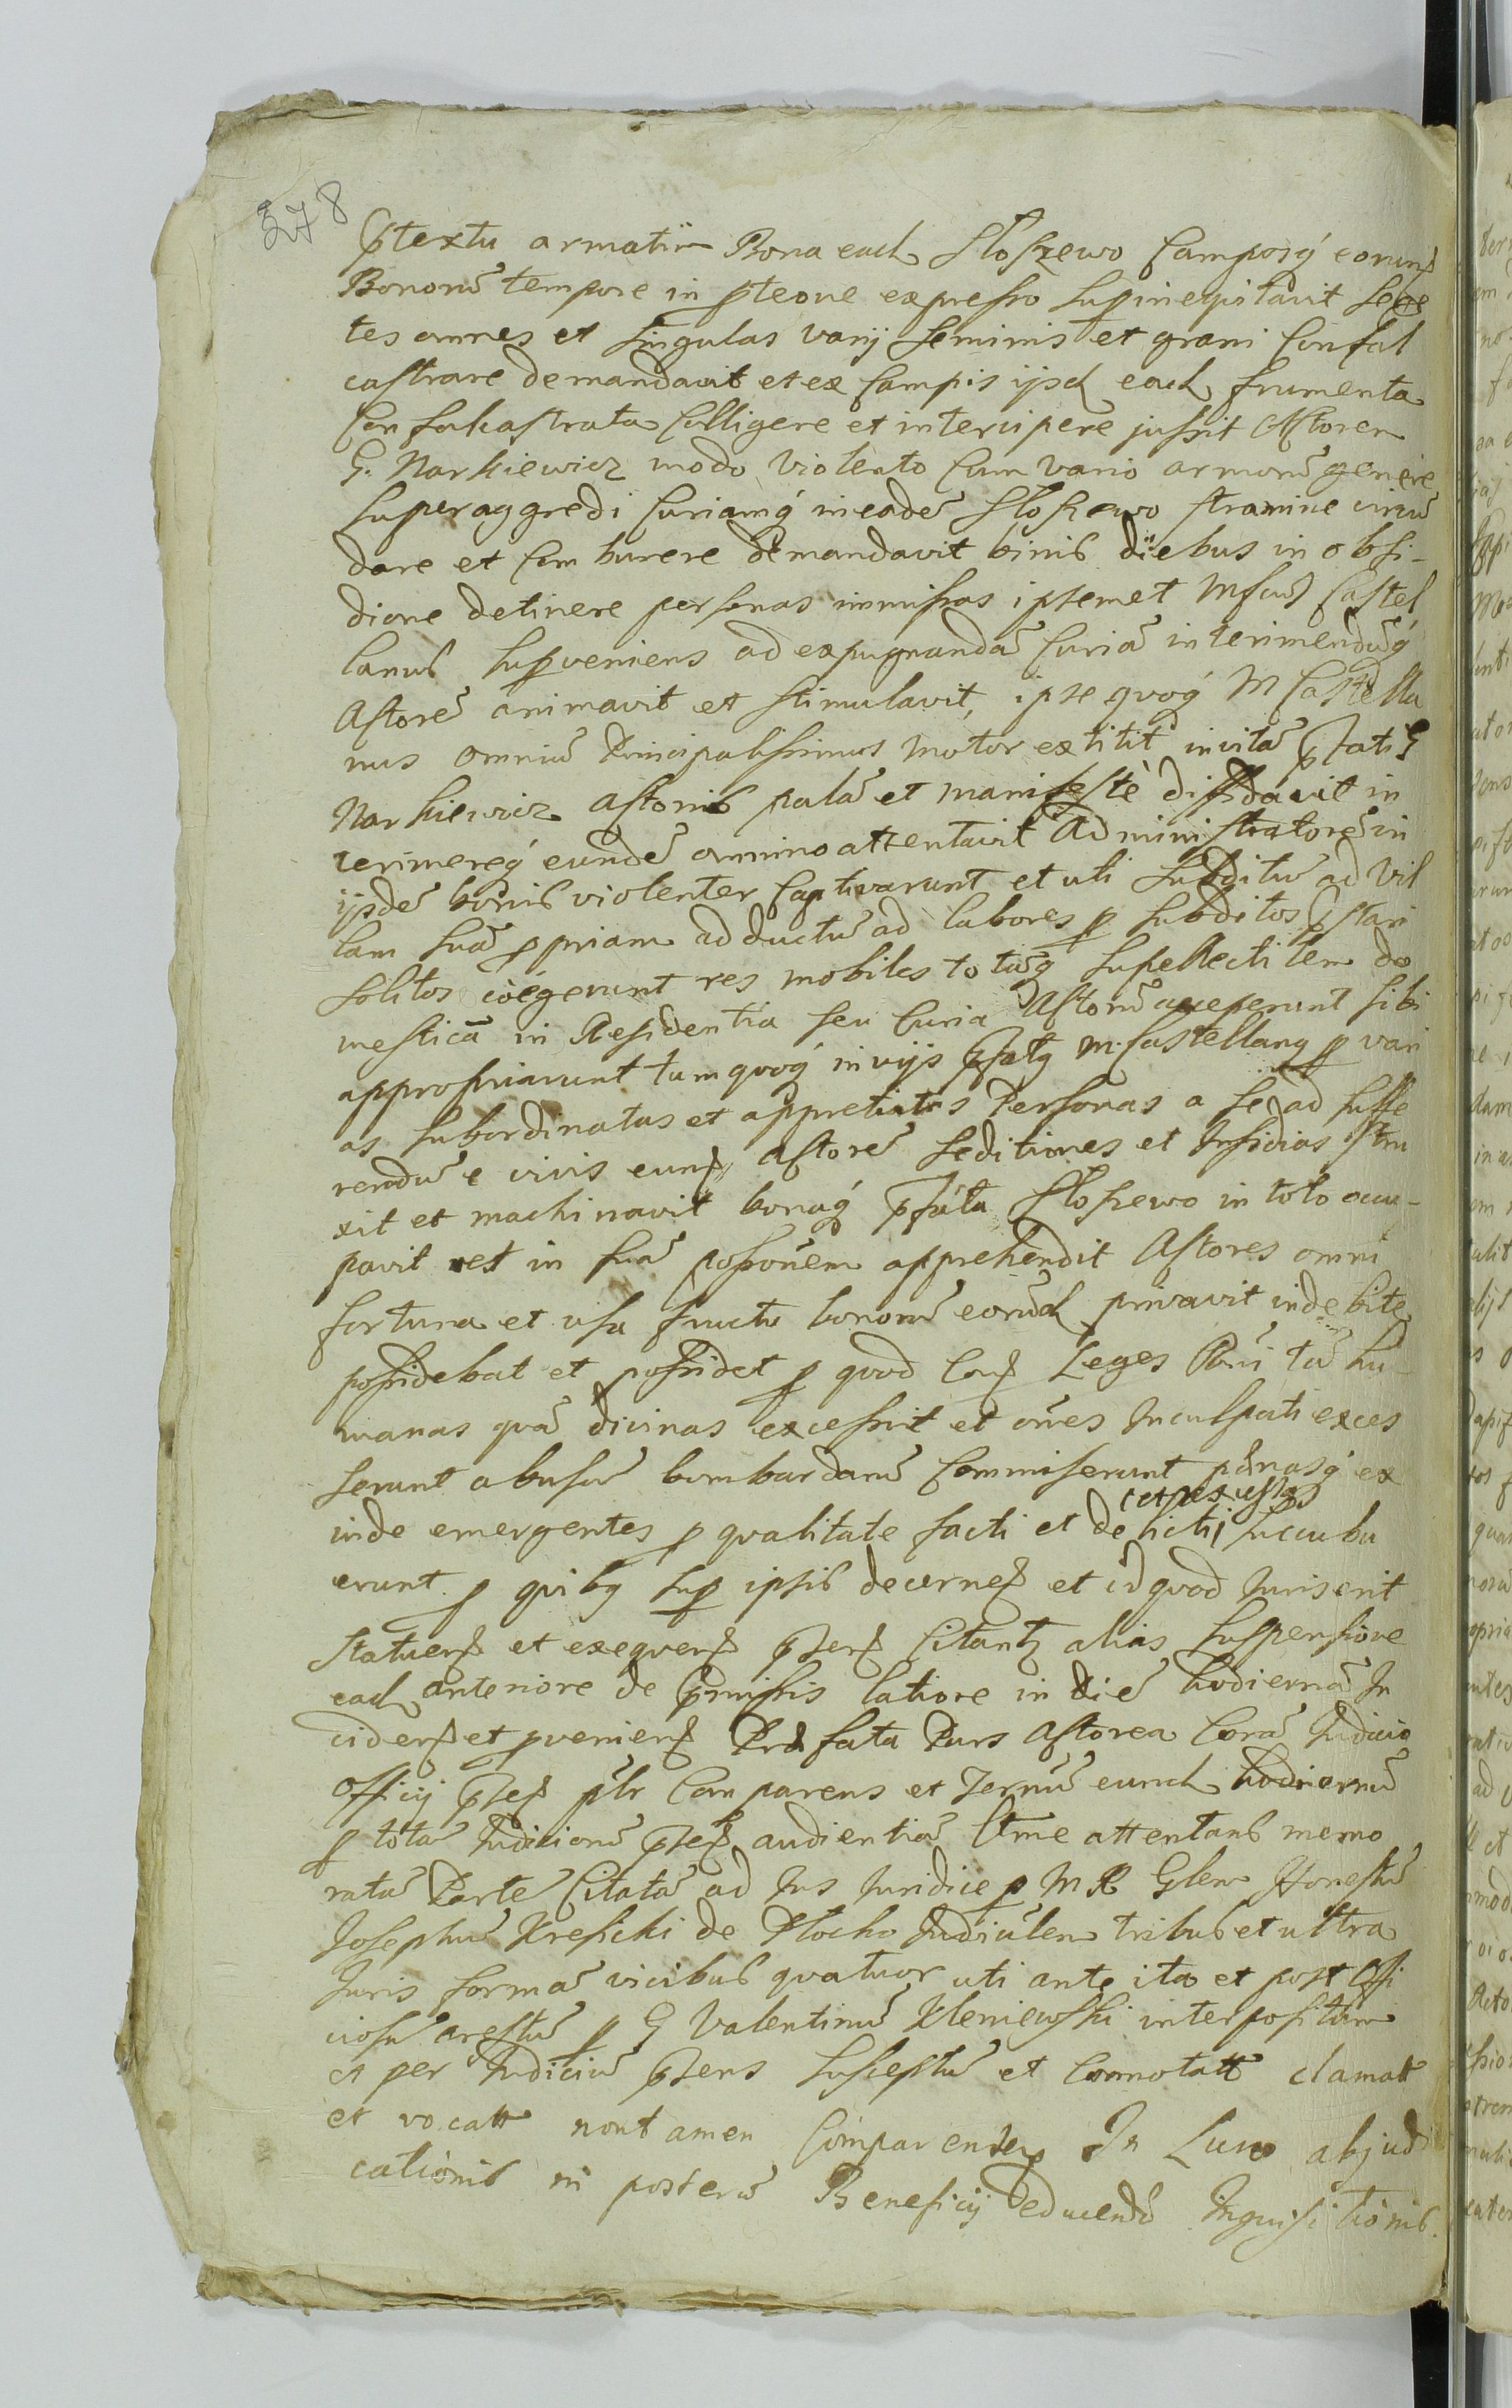 378
Ptextu armatim Bona ead Słoszewo Camposq́ eorund
Bonorū tempore in pteone expresso supinequitavit sege
tes omnes et singulas varij seminis et grani Confal
castrare demandavit et ex Campis ijsd ead frumenta
Confalcastrata Colligere et intercipere jussit Actorem
G. Narkiewicz modo violento Cum vario armorū genere
superaggredi Curiamq́ in eadē Słoszewo stramine circū
dare et Comburere demandavit binis diebus in obsi-
dione detinere personas immissas ipsemet Mfcus Castel
lanus supveniens ad expugnandā Curiā interimendūq́
Actorē animavit et stimulavit, ipse quoq́ M Castella
nus omniū Principalissimus motor extitit in vitā pfati G
Narkiewicz Actoris palā et manifestè diffidavit in
terimereq́ eundē omnino attentavit Administratorē in
ijsdē bonis violenter Captivarunt et uti subditū ad Vil
lam suā ppriam adductū ad labores p subditos pstari
solitos coëgerunt res mobiles totāq́ supellectilem do
mesticā in Residentia seu Curia Actorū acceperunt sibi
appropriarunt tum quoq́ in vijs pfatq M. Castellanq p vari
as subordinatas et appretiatas Personas a se ad suffe
rendū e vivis eund Actorē seditiones et Insidias stru
xit et machinavit bonaq́ pfata Słoszewo in toto occu-
pavit et in suā possonem apprehendit Actores omni
fortuna et usu fructu bonorū eorūd privavit indebite
possidebat et possidet p quod Cont Leges Pūri tā hu-
manas quā divinas excessit et oēs Inculpati exces
serunt abusū bombardarū Commiserunt pēnasq́ ex
inde emergentes p qualitate facti et delicti succubu
erunt p quibq sup ipsis decernen et id quod Juris erit
statuen et exequen psen Citant alias suspensione
ead anteriore de pmissis latiore in diē hodiernā In
ciden et pvenien Præfata Pars Actorea Corā Judicio
Officij psen plr Comparens et Ternū eund hodiernū
p totā Judiciorū psen audientiā Ltme attentans memo
ratā Partē Citatā ad Jus Juridice p M R Glem Honestū
Josephū Kresicki de Płocko Judiciālem tribus et ultra
Juris formā vicibus quatuor uti ante ita et post Offi
ciosū arestū p G Valentinū Kleniewski interpositum
et per Judiciū psens susceptū et Connotatt clamatt
et vocatt non tamen Comparentem In Lucro abjudi
cationis in posterū Beneficij educendi Inquisitionis